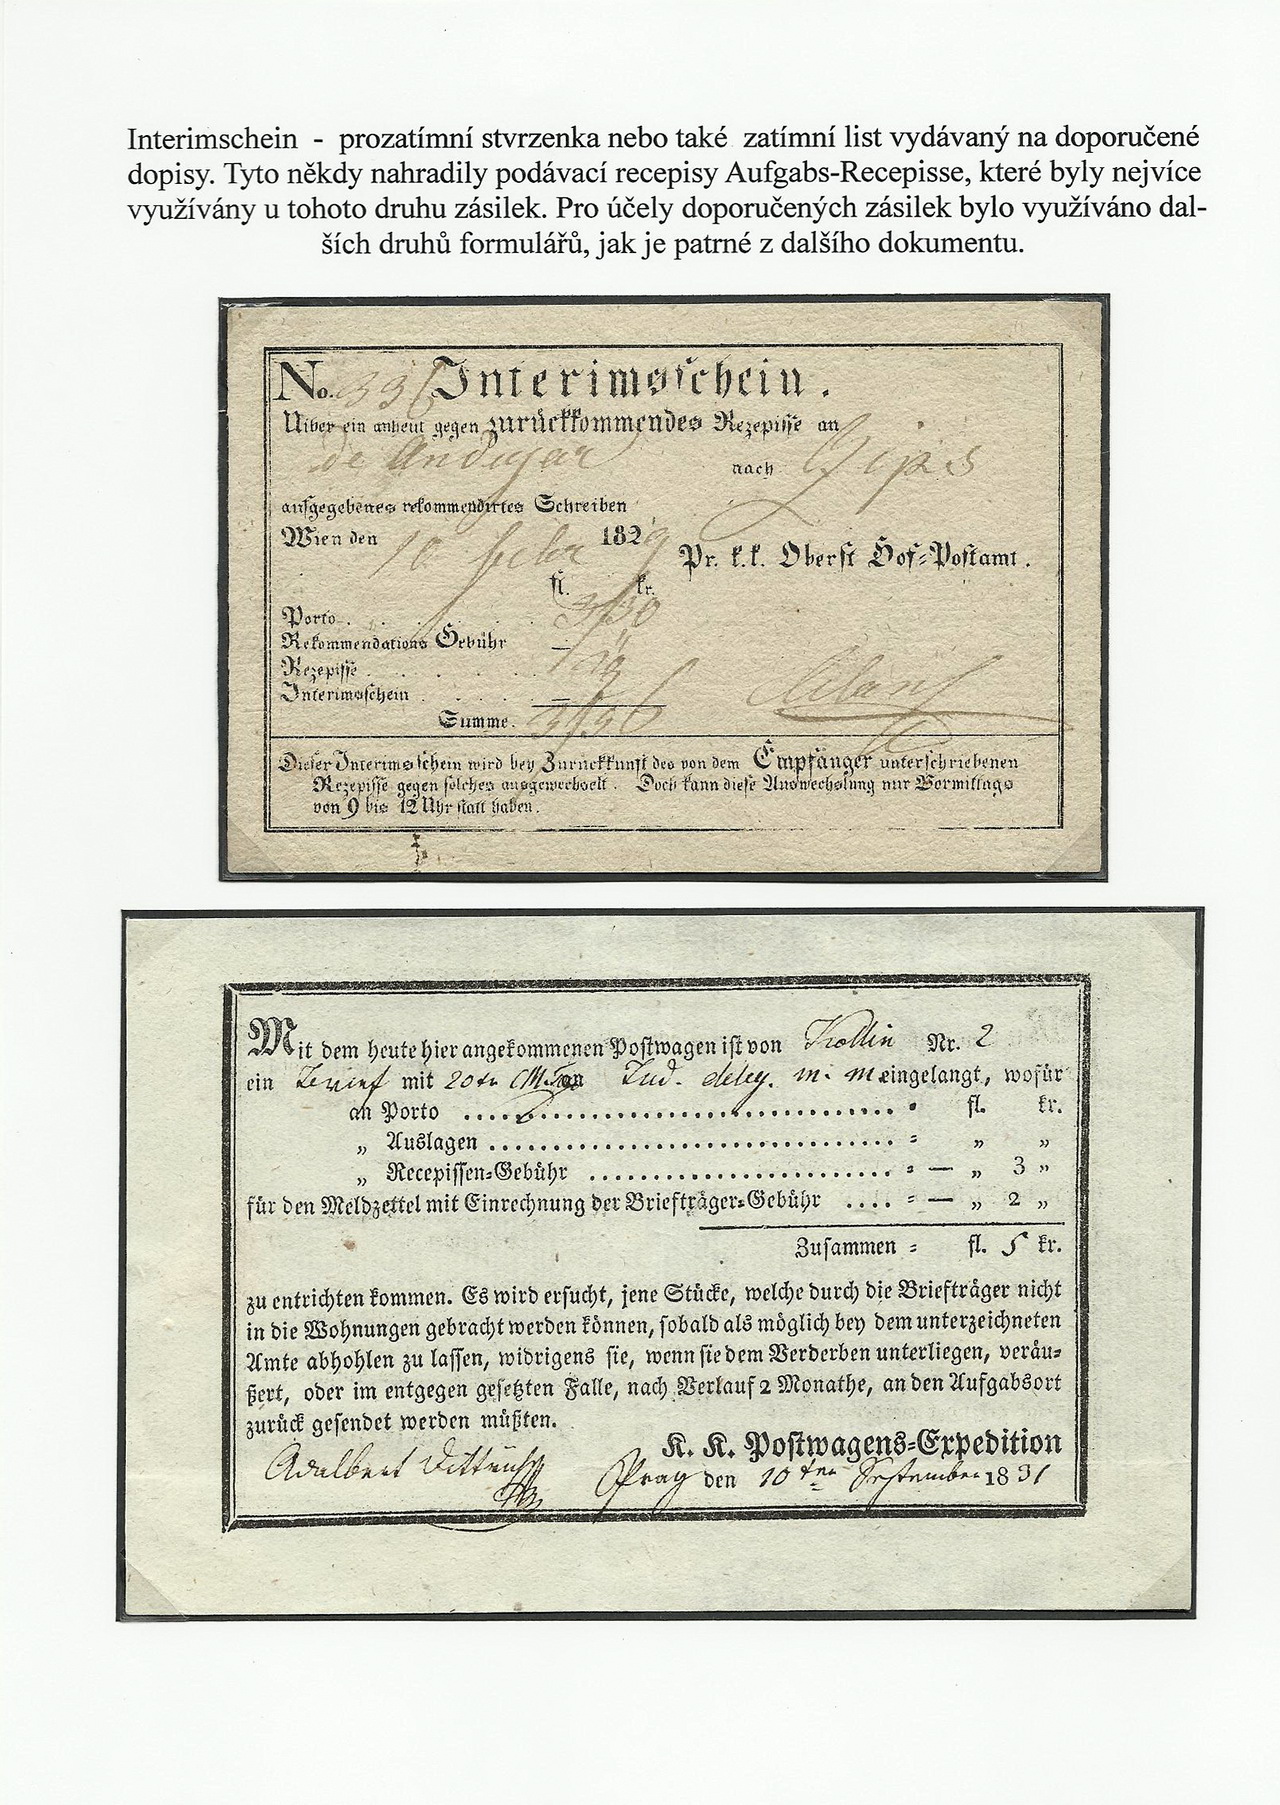 Interimschein - prozatímní stvrzenka nebo také zatímní list vydávaný na doporučené
dopisy. Tyto někdy nahradily podávací recepisy Aufgabs-Recepisse, které byly nejvíce
využívány u tohoto druhu zásilek. Pro účely doporučených zásilek bylo využíváno dal-
ších druhů formulářů, jak je patrné z dalšího dokumentu.
No. 336 Interimsschein.
Uiber ein anheut gegen zurückkommendes Rezepisse an
de Andujar nach
aufgegebenes rekommendirtes Schreiben
Wien den 10 Febr 1829
Pr. k.k. Oberst Hof-Postamt.
fl. kr.
Porto
Rekommendations Gebühr
Rezepisse
Interimsschein
Summe.
Dieser Interimsschein wird bey Zurückkunft des von dem Empfänger unterschriebenen
Rezepisse gegen solches ausgewechselt. Doch kann diese Auswechslung nur Vormittags
von 9 bis 12 Uhr statt haben.
Mit dem heute hier angekommenen Postwagen ist von Kollin Nr. 2
ein mit an eingelangt, wofür
an Porto = fl. kr.
„ Auslagen = „ „
„ Recepissen-Gebühr = — „ 3 „
für den Meldzettel mit Einrechnung der Briefträger-Gebühr = — „ 2 „
Zusammen = fl. 5 kr.
zu entrichten kommen. Es wird ersucht, jene Stücke, welche durch die Briefträger nicht
in die Wohnungen gebracht werden können, sobald als möglich bey dem unterzeichneten
Amte abhohlen zu lassen, widrigens sie, wenn sie dem Verderben unterliegen, veräu-
ßert, oder im entgegen gesetzten Falle, nach Verlauf 2 Monathe, an den Aufgabsort
zurück gesendet werden müßten.
K. K. Postwagens-Expedition
Adalbert Dittrich
Prag den 10ten September 1831